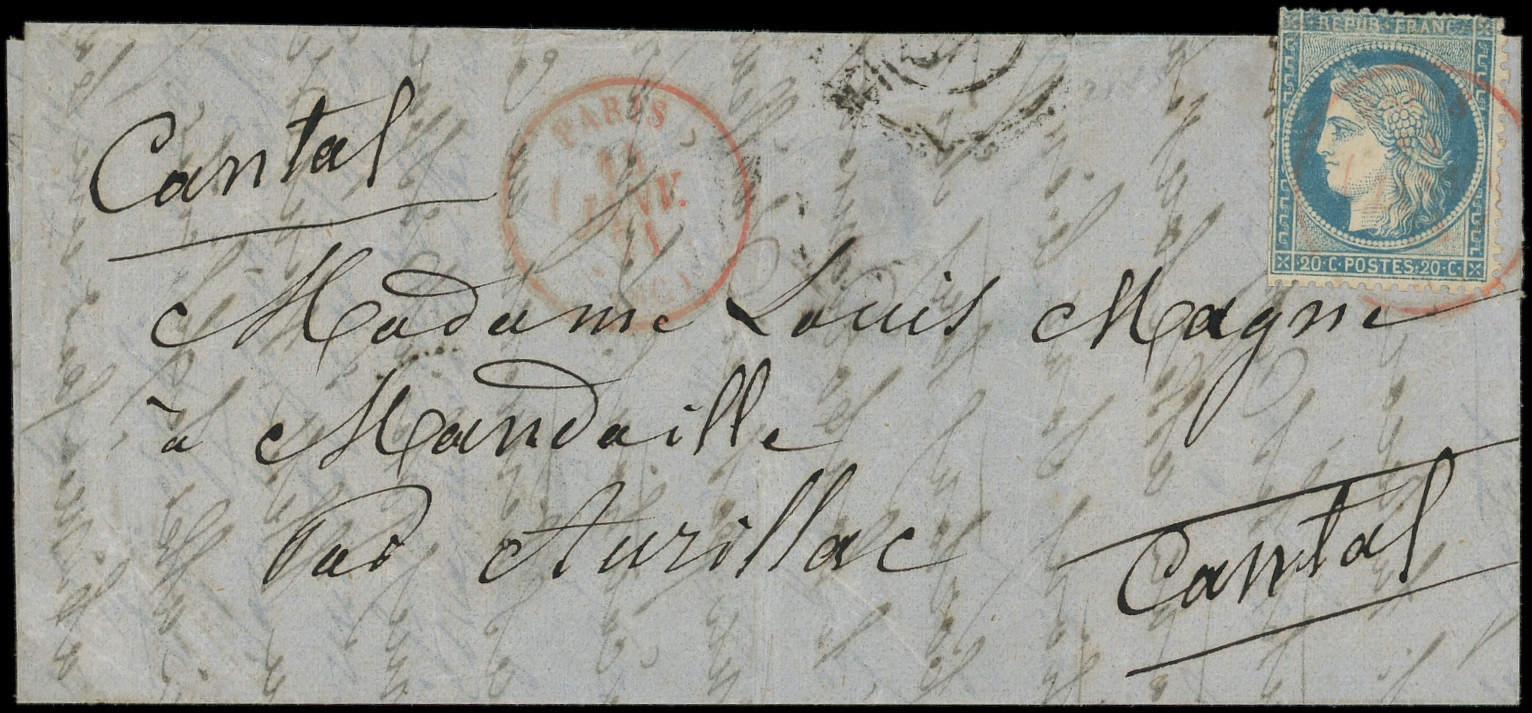 REPUB·FRANC
20·C·POSTES·20·C·
Cantal
PARIS
JANV.
71
(SC)
Madame Louis Magne
à Mandaille
Par Aurillac
Cantal